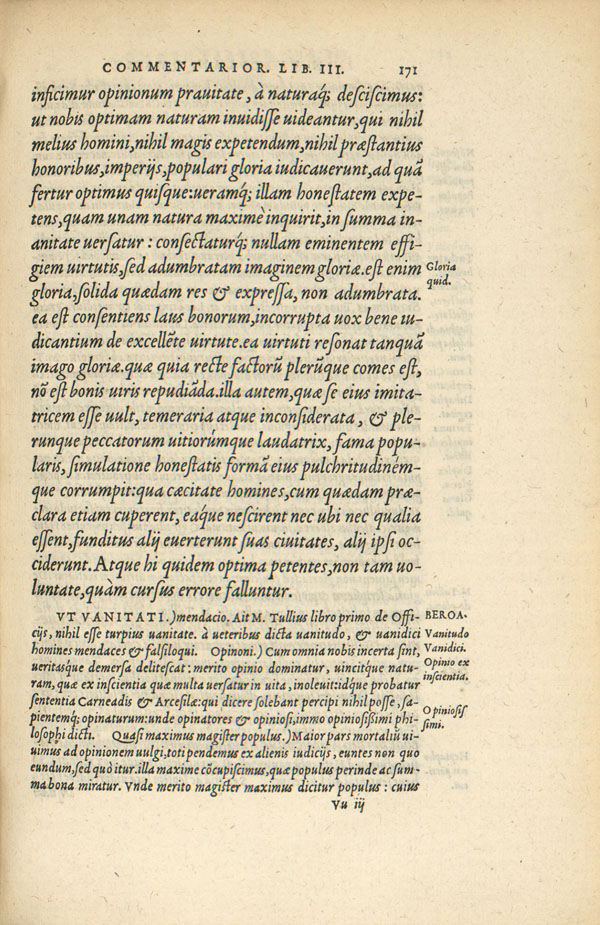 COMMENTARIOR. LIB. III. 171
inficimur opinionum prauitate, à naturaq́; desciscimus:
ut nobis optimam naturam inuidisse uideantur, qui nihil
melius homini, nihil magis expetendum, nihil præstantius
honoribus, imperijs, populari gloria iudicauerunt, ad quã
fertur optimus quisque: ueramq́; illam honestatem expe-
tens, quam unam natura maximè inquirit, in summa in-
anitate uersatur : consectaturq́; nullam eminentem effi-
giem uirtutis, sed adumbratam imaginem gloriæ. est enim
Gloria
quid.
gloria, solida quædam res & expressa, non adumbrata.
ea est consentiens laus bonorum, incorrupta uox bene iu-
dicantium de excellẽte uirtute. ea uirtuti resonat tanquã
imago gloriæ. quæ quia recte factorũ plerũque comes est,
nõ est bonis uiris repudiãda. illa autem, quæ se eius imita-
tricem esse uult, temeraria atque inconsiderata, & ple-
runque peccatorum uitiorúmque laudatrix, fama popu-
laris, simulatione honestatis formã eius pulchritudinem-
que corrumpit: qua cæcitate homines, cum quædam præ-
clara etiam cuperent, eaq́ue nescirent nec ubi nec qualia
essent, funditus alij euerterunt suas ciuitates, alij ipsi oc-
ciderunt. Atque hi quidem optima petentes, non tam uo-
luntate, quàm cursus errore falluntur.
VT VANITATI.) mendacio. Ait M. Tullius libro primo de Offi-
BEROA.
cijs, nihil esse turpius uanitate. à ueteribus dicta uanitudo, & uanidici
Vanitudo
homines mendaces & falsiloqui. Opinoni.) Cum omnia nobis incerta sint,
Vanidici.
ueritasque demersa delitescat: merito opinio dominatur, uincitque natu-
Opinio ex
inscientia.
ram, quæ ex inscientia quæ multa uersatur in uita, inoleuit: idq́ue probatur
sententia Carneadis & Arcesilæ: qui dicere solebant percipi nihil posse, sa-
pientemq́; opinaturum: unde opinatores & opiniosi, immo opiniosissimi phi-
Opiniosis
simi.
losophi dicti. Quasi maximus magister populus.) Maior pars mortaliũ ui-
uimus ad opinionem uulgi, toti pendemus ex alienis iudicijs, euntes non quo
eundum, sed quò itur. illa maxime cõcupiscimus, quæ populus perinde ac sum-
ma bona miratur. Vnde merito magister maximus dicitur populus : cuius
Vu iij